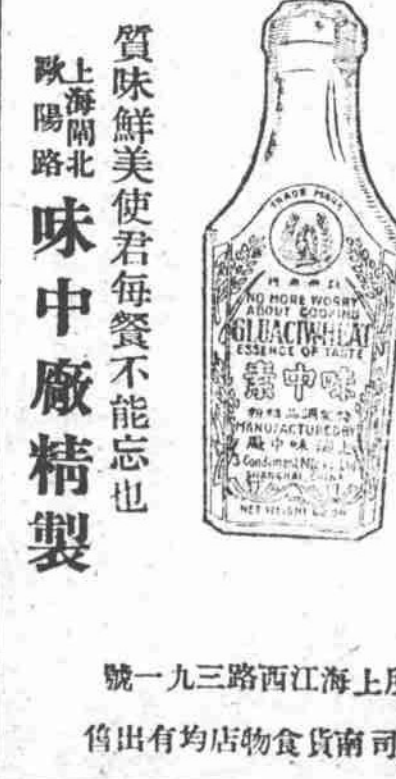 TRADE MARK
NO MORE WORRY
ABOUT COOKING
GLUACIWHEAT
ESSENCE OF TASTE
味中素
MANUFACTURED BY
上海味中廠
Condiment
SHANGHAI, CHINA
NET WEIGHT
質味鮮美使君每餐不能忘也
上海閘北
歐陽路
味中廠精製
上海江西路三九一號
司南貨食物店均有出售